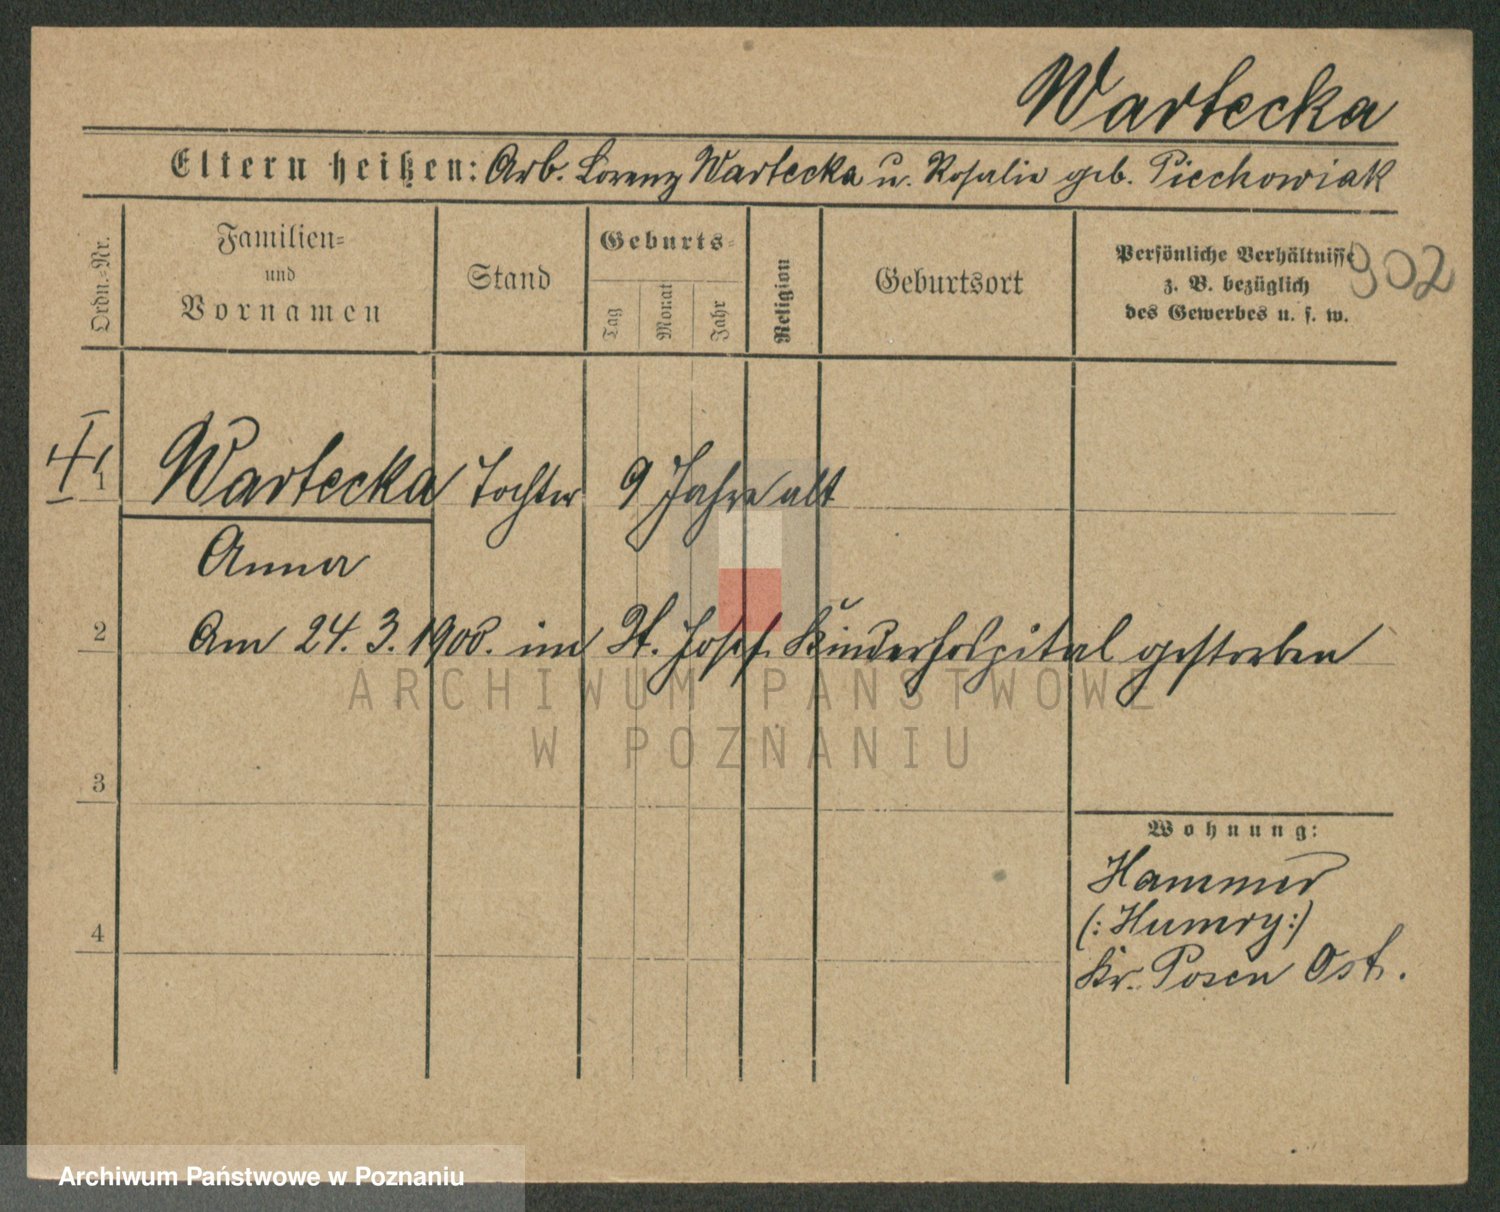 Wartecka
Eltern heißen: Arb. Lorenz Wartecka u. Rosalie geb. Piechowiak
Ordn.=Nr.
Familien=
und
Vornamen
Stand
Geburts=
Tag
Monat
Jahr
Religion
Geburtsort
Persönliche Verhältnisse
z. B. bezüglich
des Gewerbes u. s. w.
902
1 Wartecka Tochter 9 Jahre alt
Anna
2 Am 24. 3. 1900. im St. Josef. Kinderhospital gestorben
ARCHIWUM PAŃSTWOWE
W POZNANIU
3
Wohnung:
Hammer
(: Humery :)
4
Kr. Posen Ost.
Archiwum Państwowe w Poznaniu